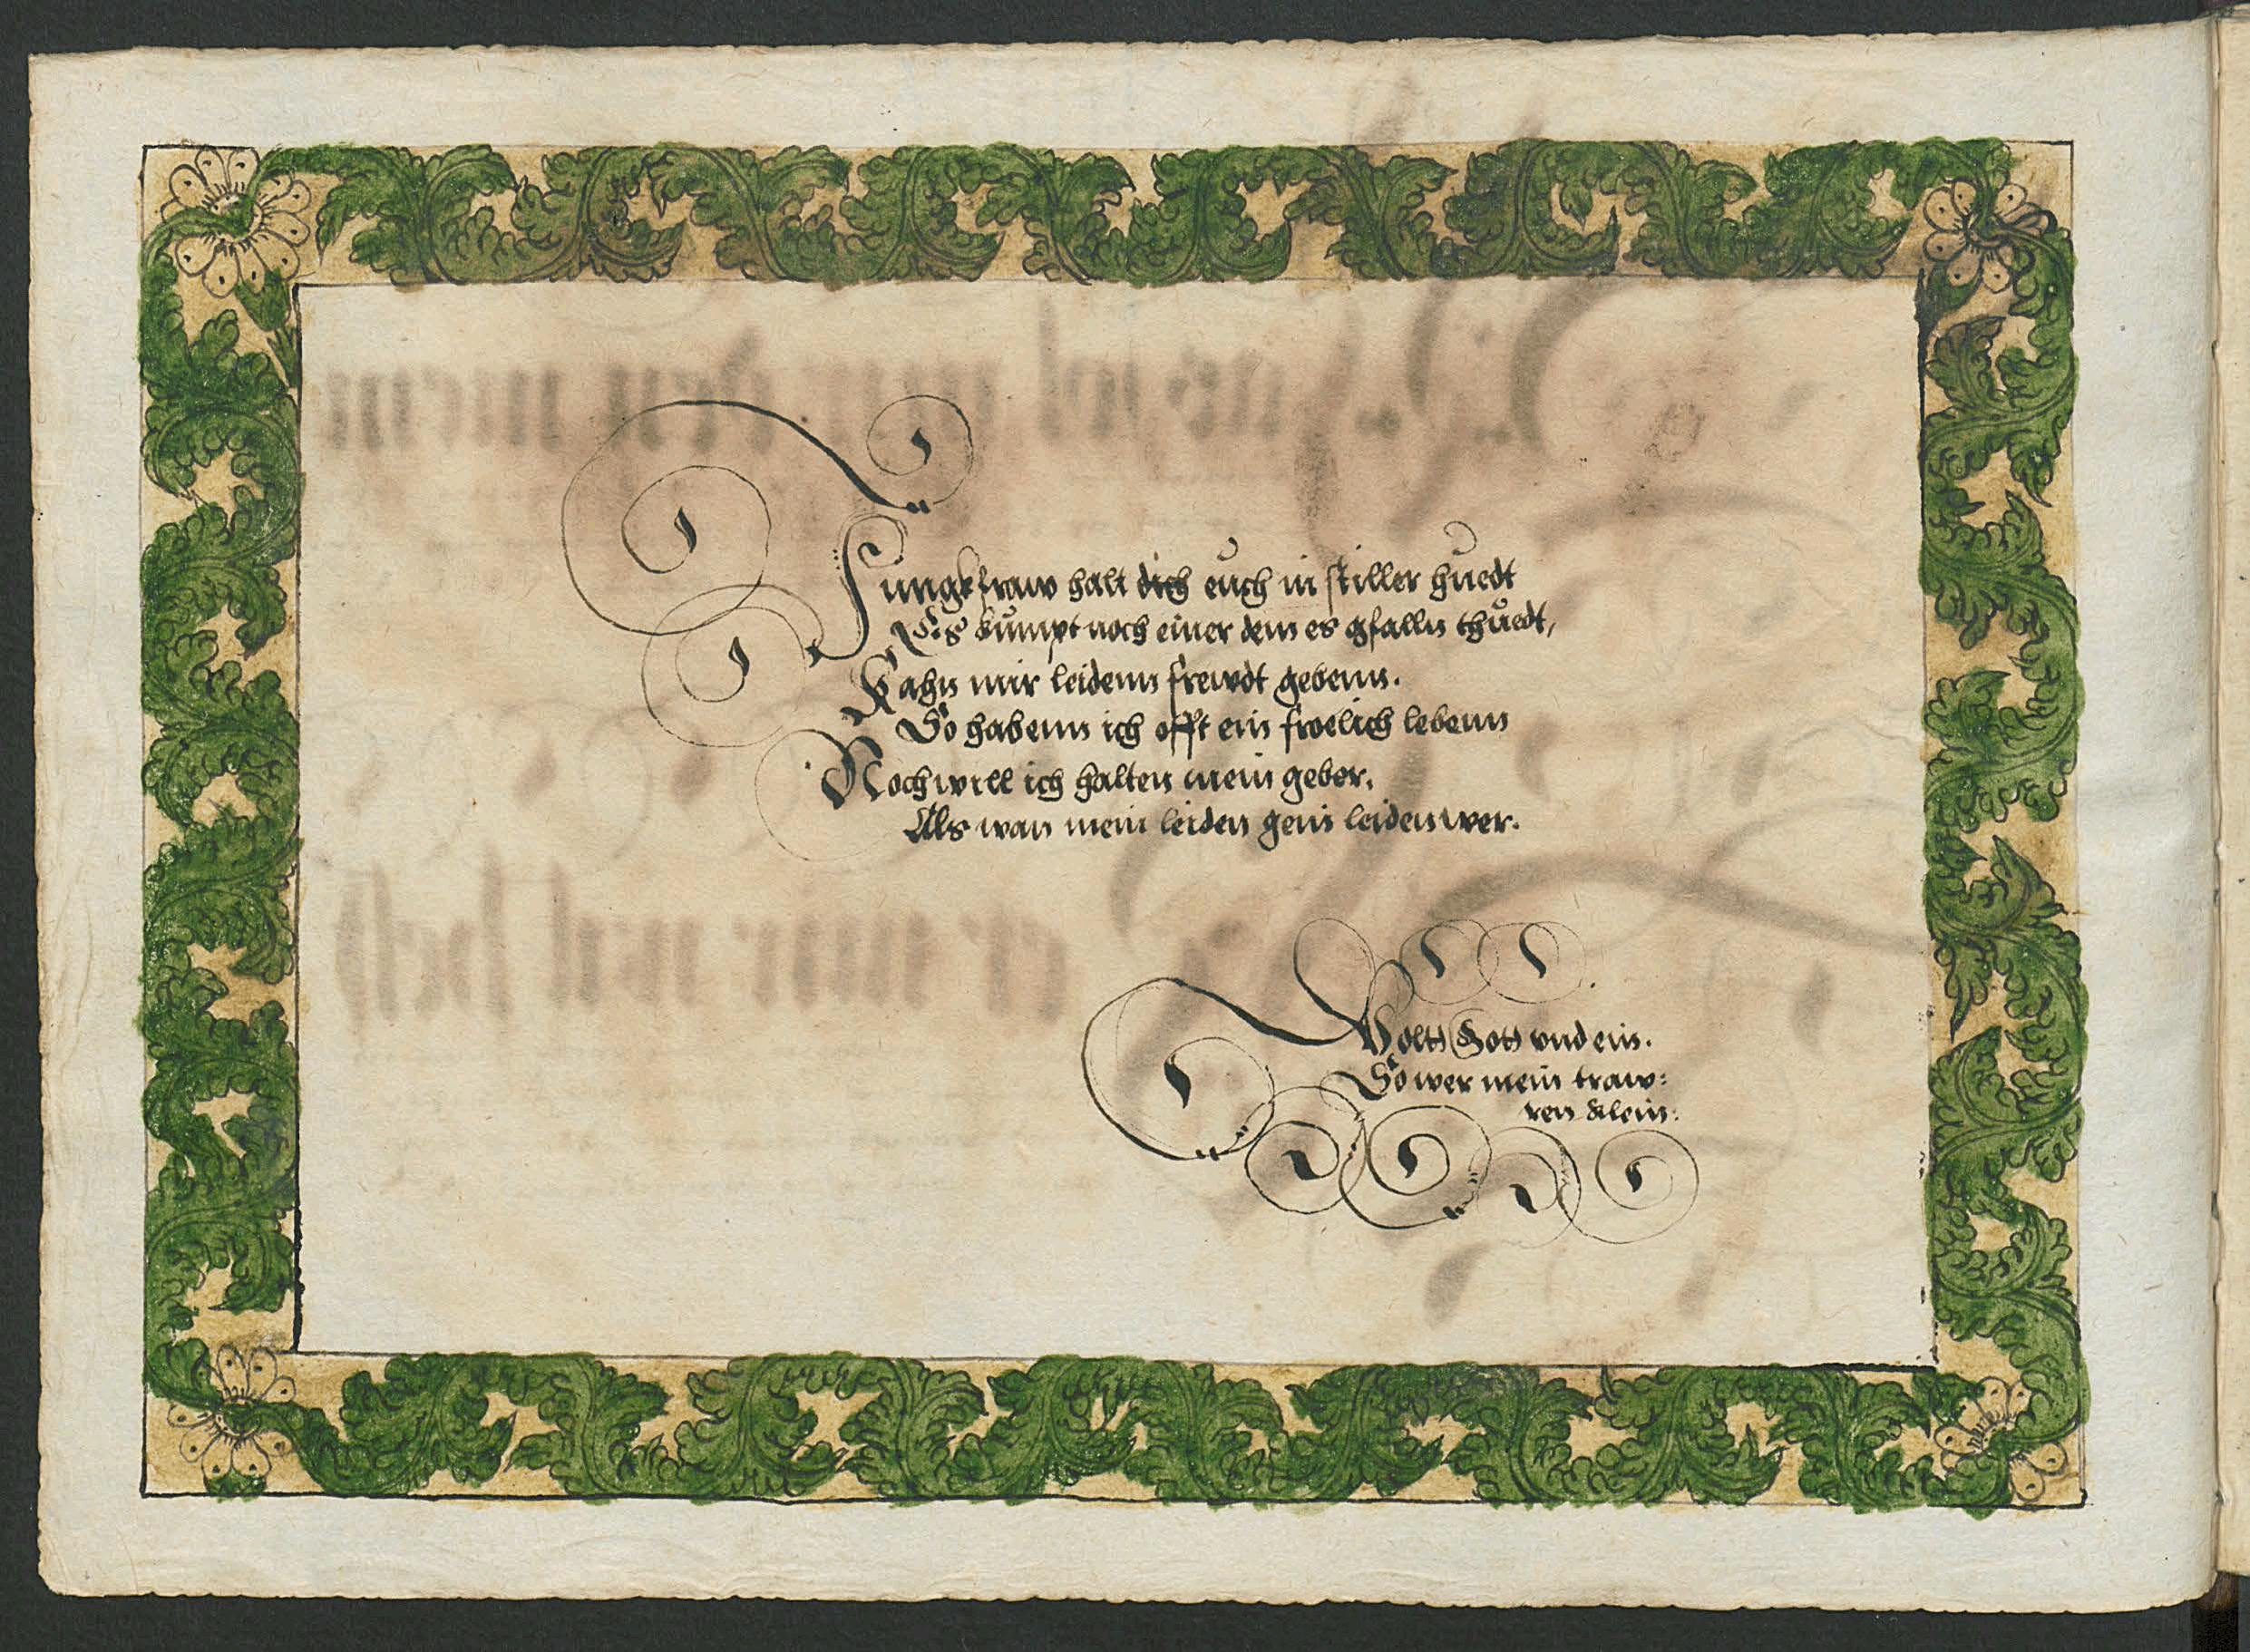 Jungkfraw halt dich euch in stiller huedt
Es kumpt noch einer dem es gfalln thuedt,
Kahn mir leidenn frewdt gebenn.
So habenn ich offt ein froelich lebenn
Noch will ich halten mein geber,
Als wan mein leiden gein leiden wer.
Wolts Gott und ein.
So wer mein traw:
ren klein: